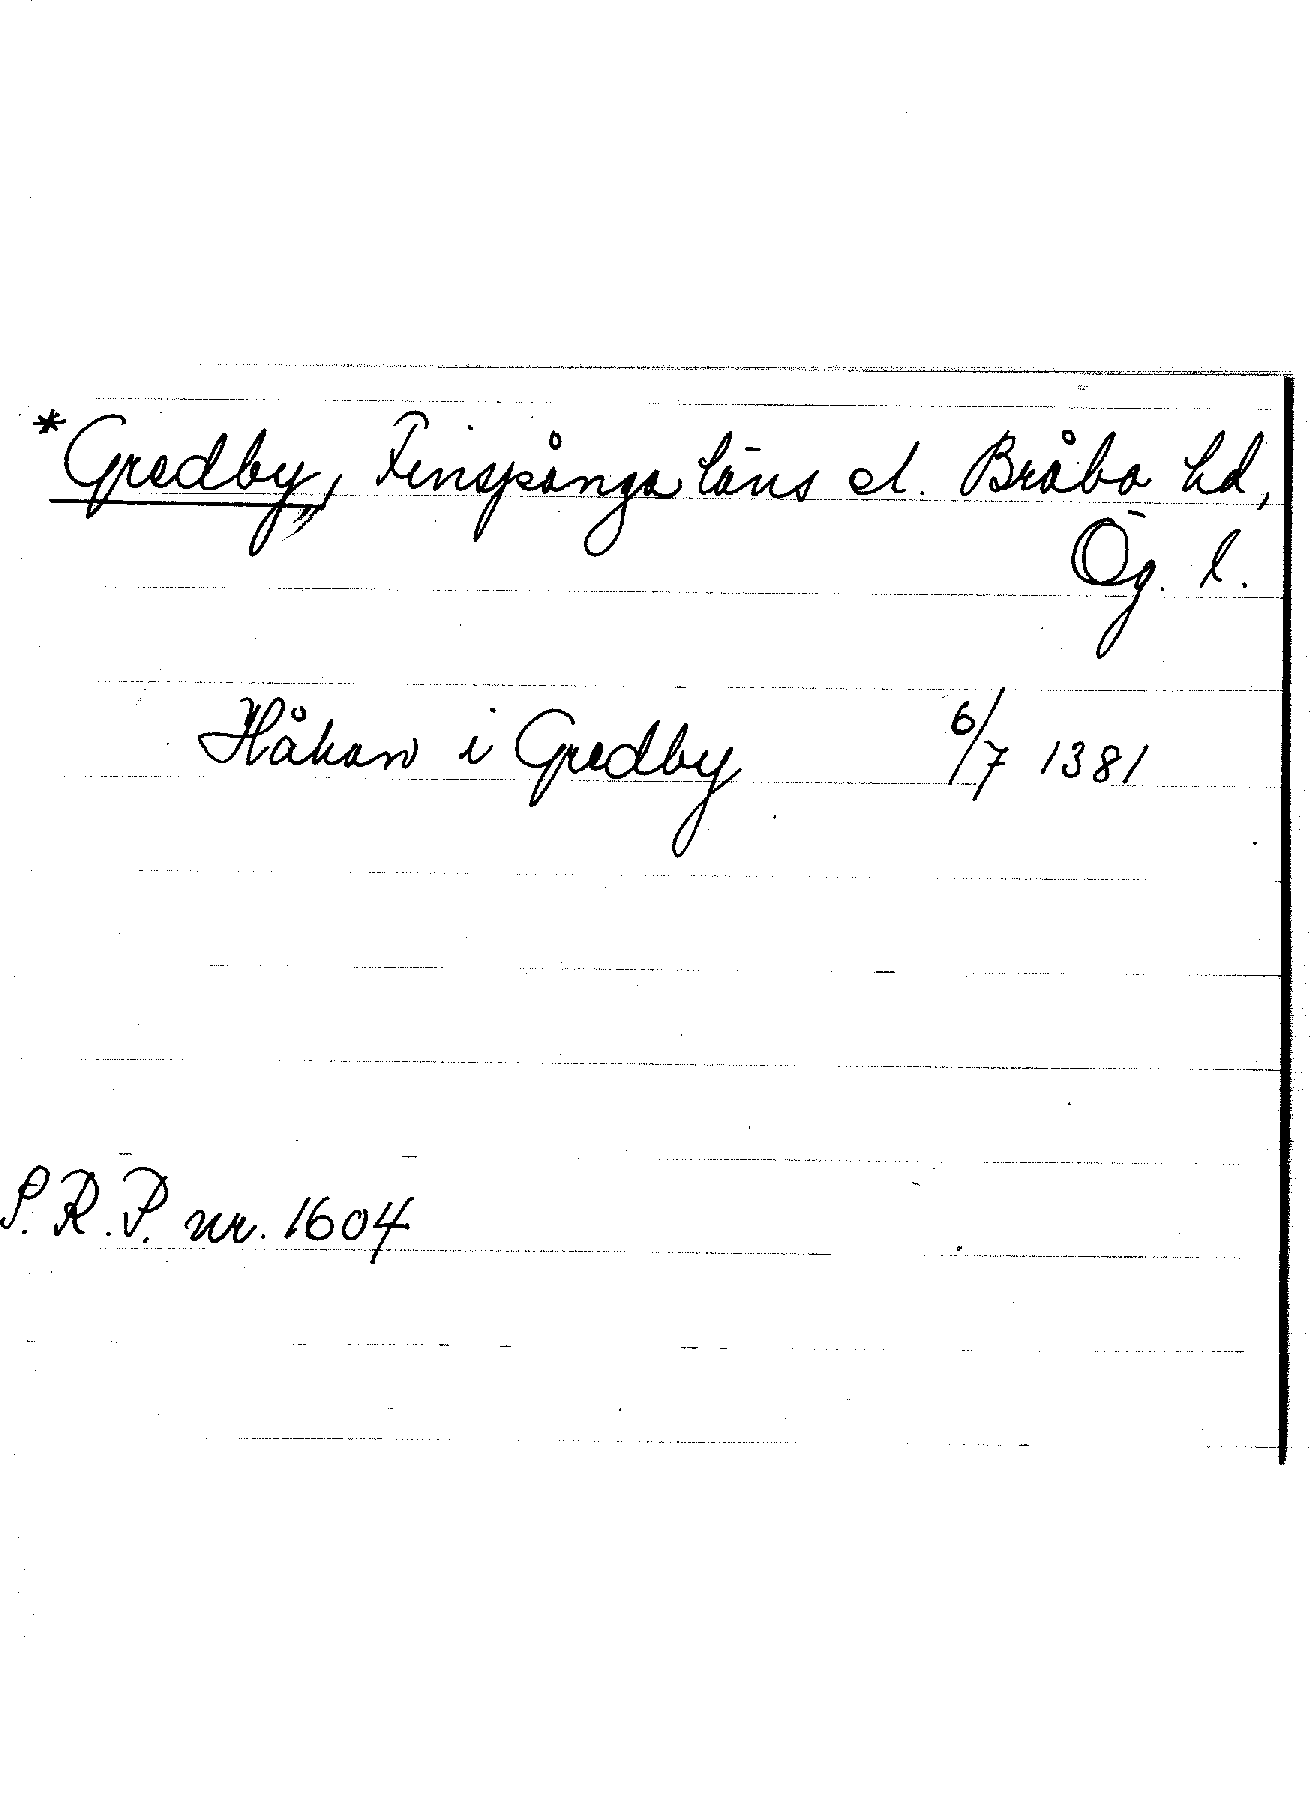 *Gredby, Finspånga läns el. Bråbo hd,
Ög. l.
Håkan i Gredby 6/7 1381
S.R.P. nr. 1604